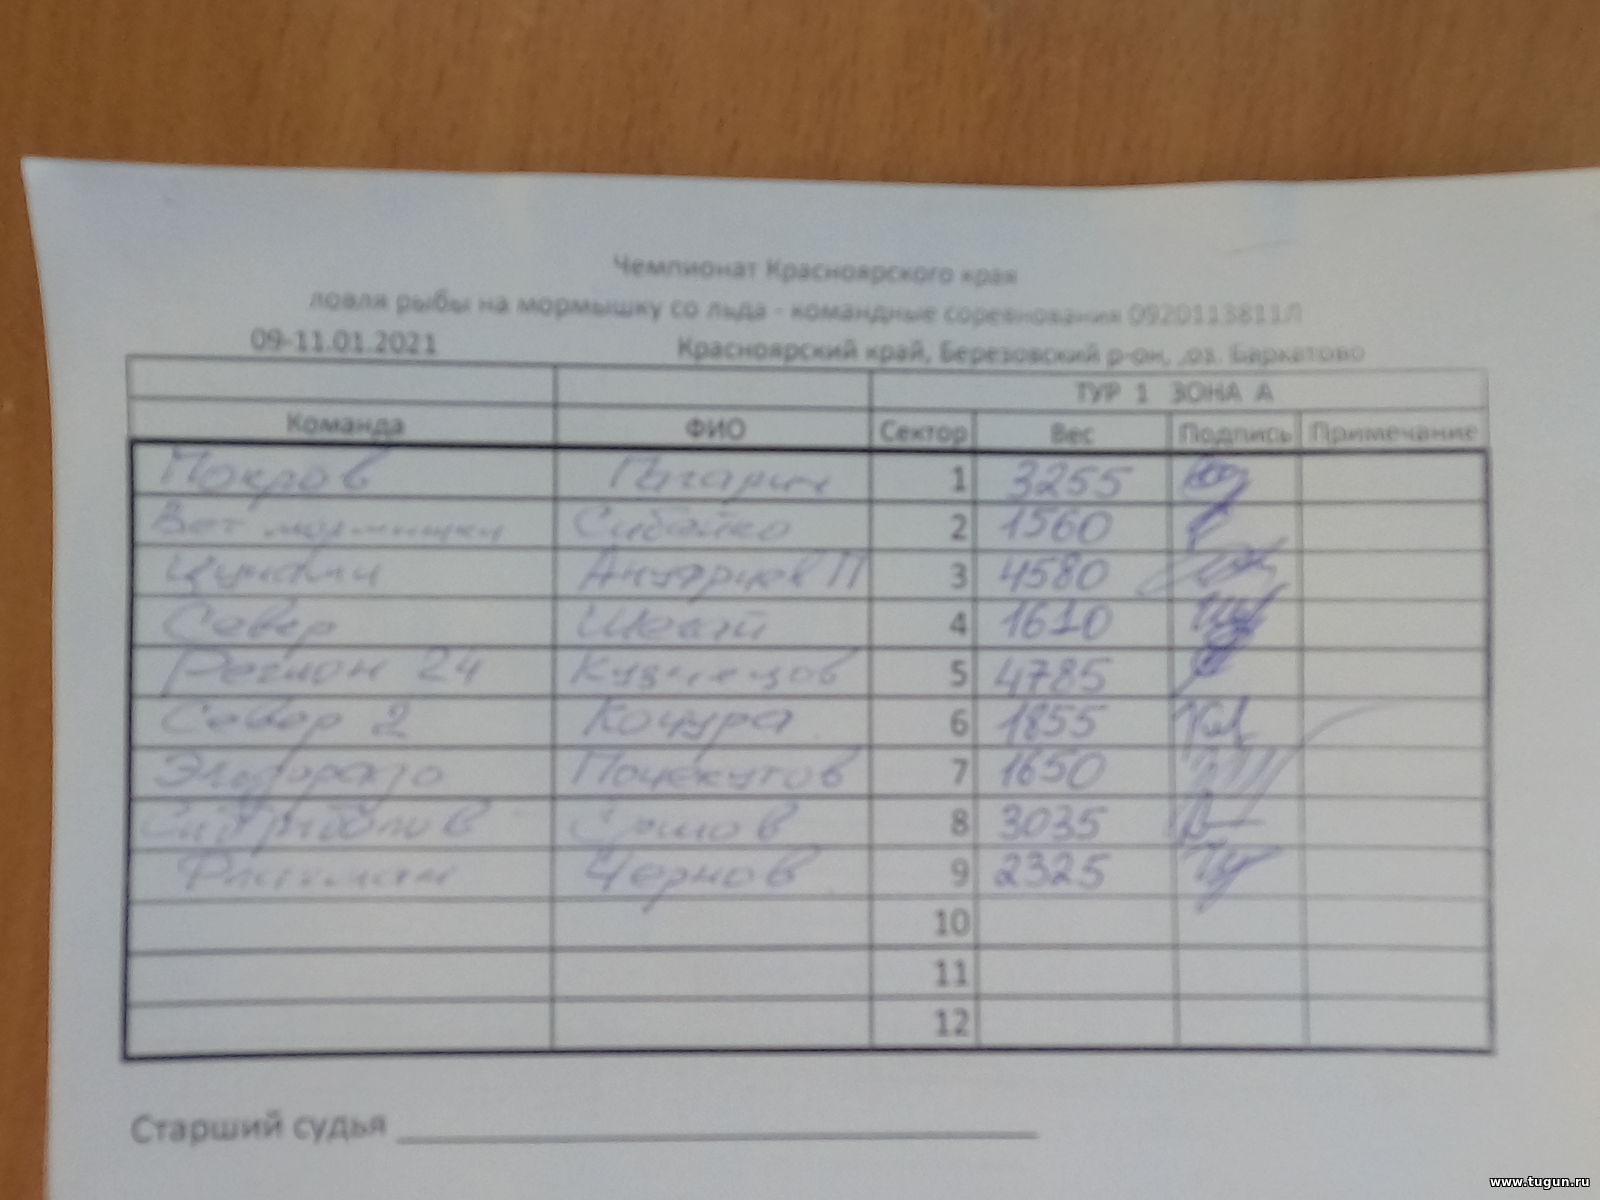 Чемпионат Красноярского края
ловля рыбы на мормышку со льда - командные соревнования 0920113811Л
09-11.01.2021 Красноярский край, Березовский р-он, ,оз. Баркатово
ТУР 1 ЗОНА А
Команда ФИО Сектор Вес Подпись Примечание
Покров Гагарин 1 3255
Вет мормышки 2 1560
Цунами П 3 4580
Север 4 1610
Регион 24 Кузнецов 5 4785
Север 2 Кочура 6 1855
Эльдорадо Почекутов 7 1650
8 3035
Чернов 9 2325
10
11
12
Старший судья
www.tugun.ru